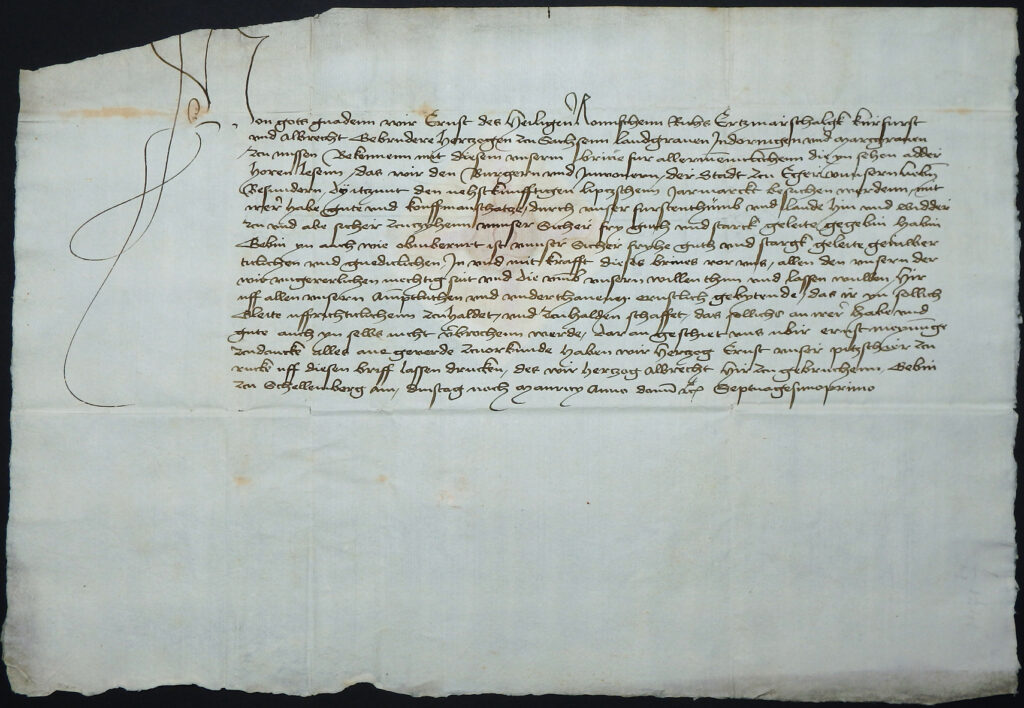 Von gots gnadenn wir Ernst des Heiligen Romischenn Richs Ertzmarschalgk kurfurst
und Albrecht Gebrudere Hertzogen zcu Sachsenn Landgraven In doringen und Marcgraven
zcu missen Bekennenn mit diesem unserm brive fur allermeniclichenn die yn sehen adder
horen lesenn, das wir den Burgern und Inwonern, der Stadt zcu Eger unsern liebn
Besundern, die itzunt den nehstkunfftigen liptzschenn Jarmarckt besuchen werdenn, mit
irer habe gute und kouffmanschatze, durch unser furstenthumb und lande hin und widder
zcu und abe sicher zcuzcyhenn unnser Sicher fry guth und starck geleite gegebin habin
Gebin yn auch wie obinberurt ist unnser Sicher fryhe guth und stargk geleite
und gnediclichen In und mit krafft dieses brives vor uns, allen den unsern der
wir ungeverlichen mechtig seit und die umb unsern willen thun und lassen wullen Hir
uff allen unsern Amptluthen und underthanen ernstlich gebytende, das ir yn sollich
Gleite uffrichticlichenn zcuhaldet, und zcuhalden schaffet, das sollichs an irer habe und
gute auch yn selbs nicht vorbrochenn werde, daran geschiet uns ubir ernst meynunge
zcudancke alles ane geverde zcuorkunde haben wir Hertzog Ernst unser pitzschir zcu
rucke uff diesen briff lassen drucken, des wir hertzog Albrecht hir zcu gebruchenn, Gebin
zcu Schellenberg am, dinstag noch Mauricy Anno domini etc Septuagesimoprimo